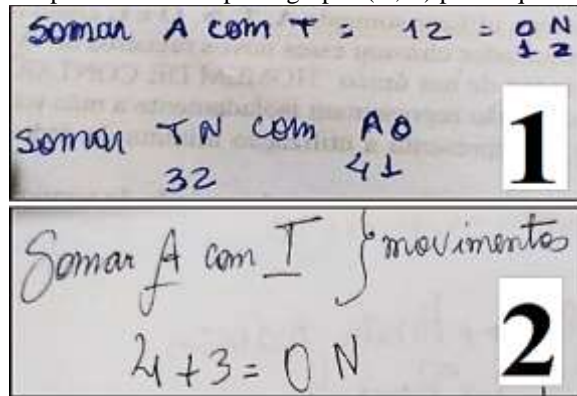 Somar A com T = 12 = O N
1 2
Somar TN com AO
32 41
1
Somar A com T } movimentos
4 + 3 = O N
2